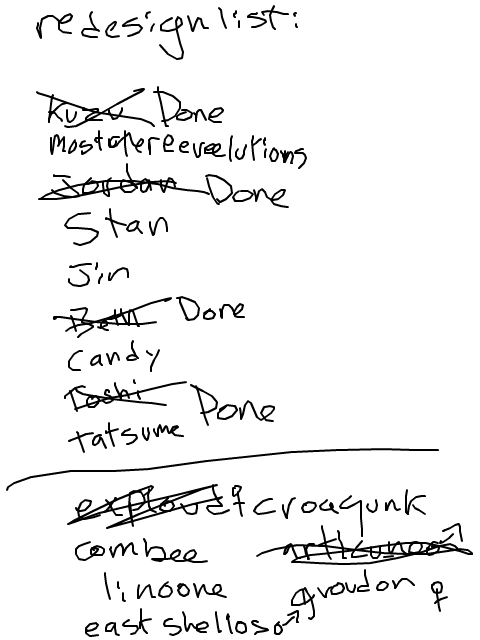 redesign list:
Kuzu Done
Most of eeveelutions
Jordan Done
Stan
Jin
Beth Done
Candy
Toshi Done
tatsume
exploud♀ croagunk
combee articuno♂
linoone groudon ♀
east shellos♂